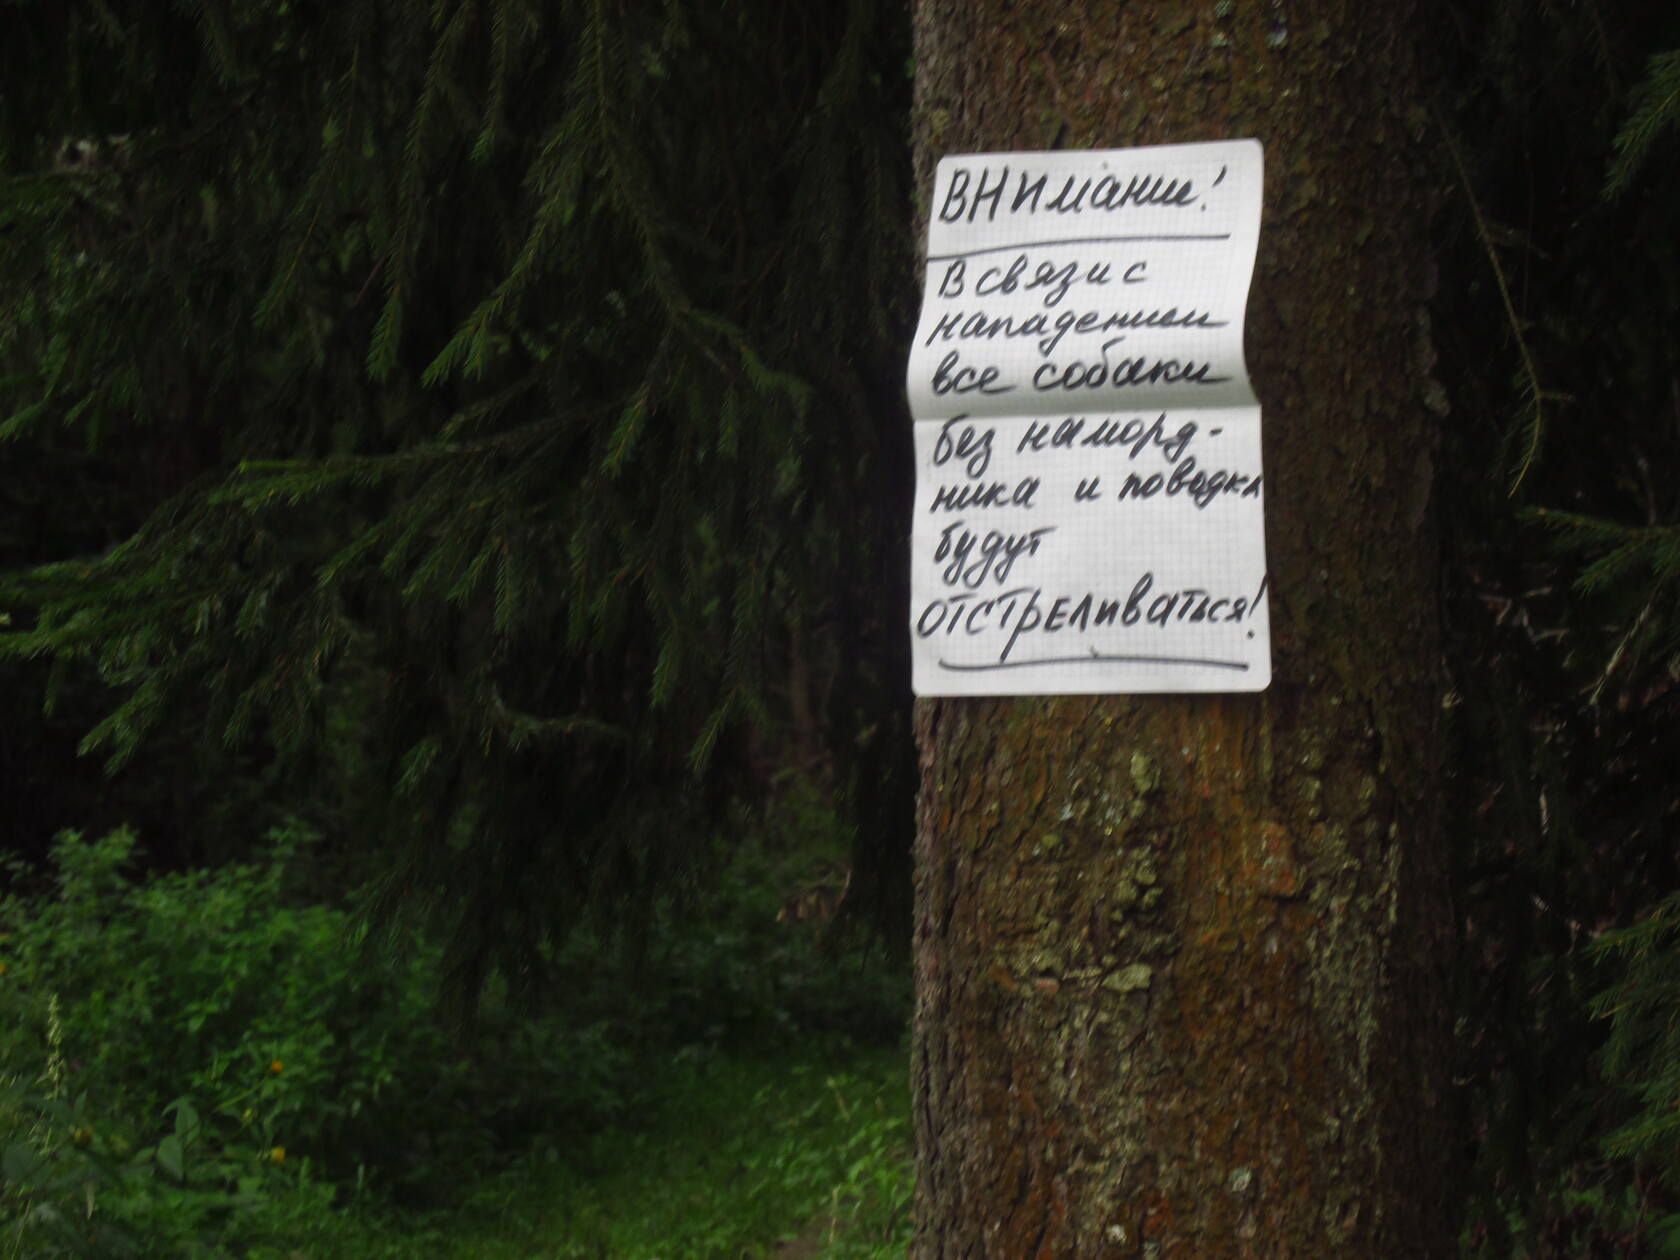 ВНИМАНИЕ!
В связи с
нападением
все собаки
без наморд-
ника и поводка
будут
ОТСТРЕЛИВАТЬСЯ!